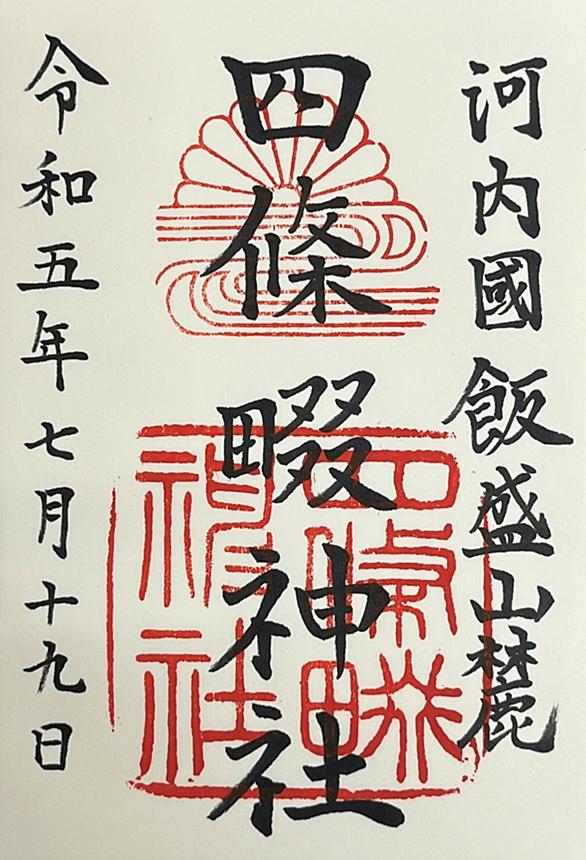 河内國飯盛山麓
四條畷神社
四條畷神社
令和五年七月十九日